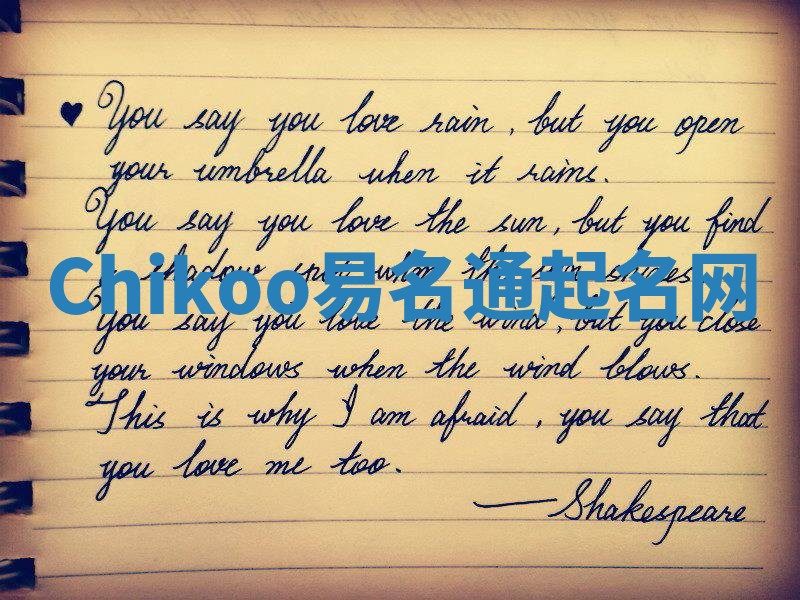 You say you love rain, but you open
your umbrella when it rains.
You say you love the sun, but you find
a shadow spot when the sun shines.
Chikoo易名通起名网
You say you love the wind, but you close
your windows when the wind blows.
This is why I am afraid, you say that
you love me too.
—Shakespeare